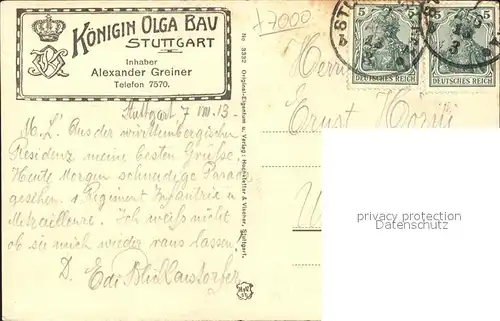 +7000
KÖNIGIN OLGA BAU
STUTTGART
Inhaber
Alexander Greiner
Telefon 7570.
Stuttgart 7 VIII.13.
M. L! Aus der württembergischen
Residenz meine besten Grüsse.
Heute Morgen schneidige Parade
gesehen. 1 Regiment Infanterie u
Mitrailleure. Ich weiss nicht
ob sie mich wieder raus lassen.
D. Edi
No 3392 Original-Eigentum u. Verlag: Hochstetter & Vischer, Stuttgart.
5 5
DEUTSCHES REICH
5 5
DEUTSCHES REICH
Herrn
Ernst
privacy protection
Datenschutz